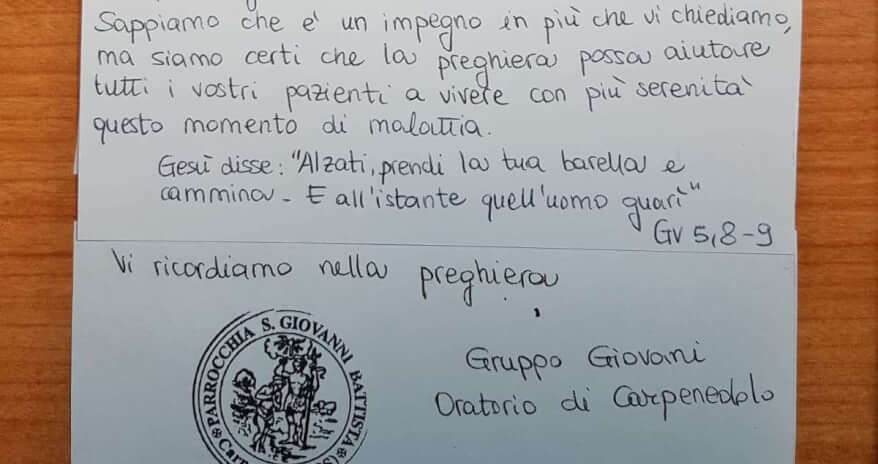 Sappiamo che è un impegno in più che vi chiediamo,
ma siamo certi che la preghiera possa aiutare
tutti i vostri pazienti a vivere con più serenità
questo momento di malattia.
Gesù disse: "Alzati, prendi la tua barella e
cammina - E all'istante quell'uomo guarì"
Gv 5,8-9
Vi ricordiamo nella preghiera
PARROCCHIA S. GIOVANNI BATTISTA
Gruppo Giovani
Oratorio di Carpenedolo